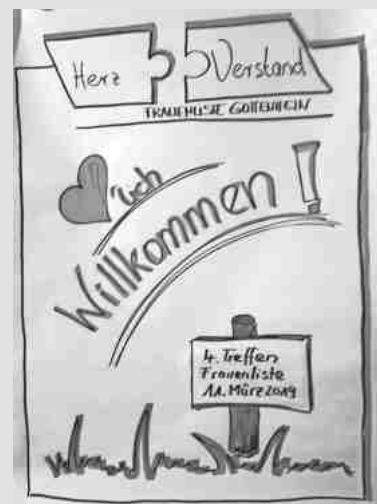 Herz Verstand
FRAUENLISTE GOTTENHEIM
'lich
Willkommen!
4. Treffen
Frauenliste
11. März 2019